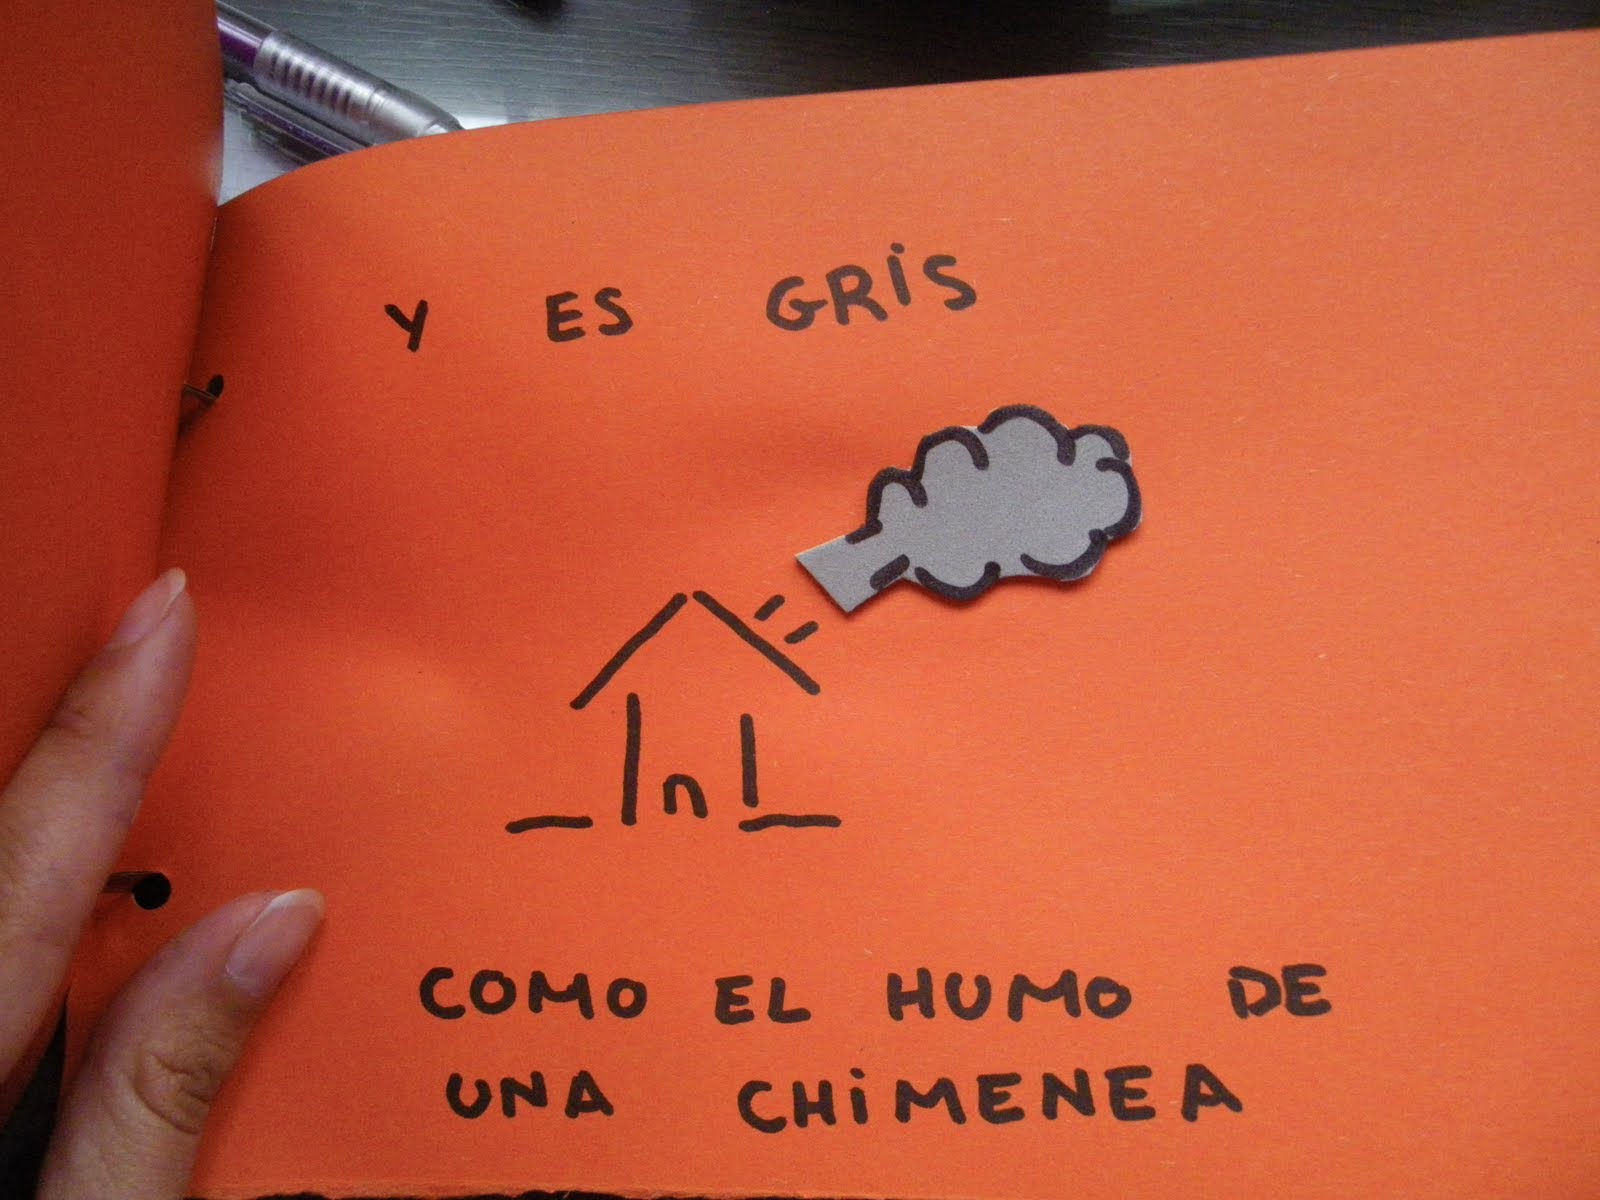 Y ES GRiS
COMO EL HUMO DE
UNA CHiMENEA